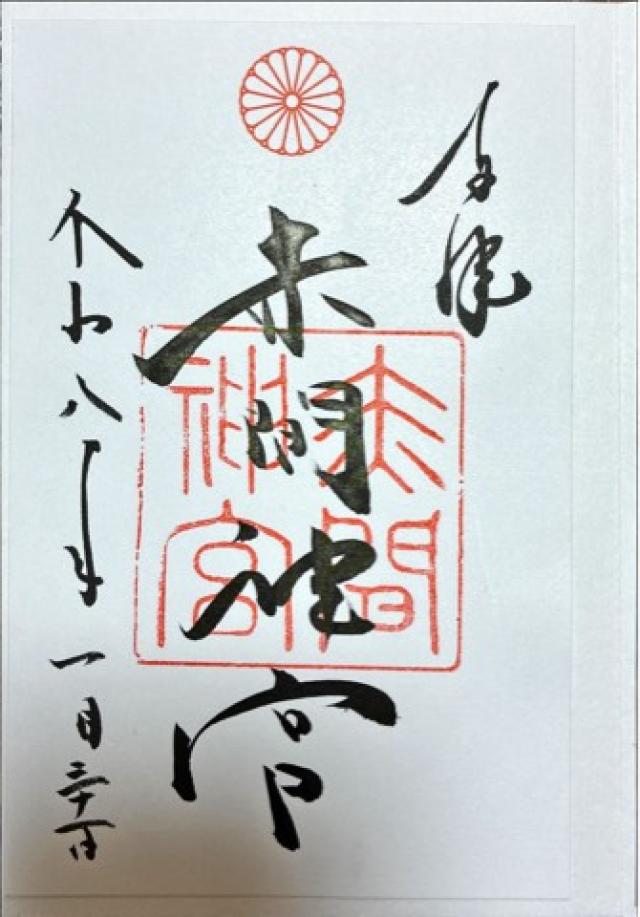 奉拝
赤間神宮
赤間
神宮
令和八年一月三十一日